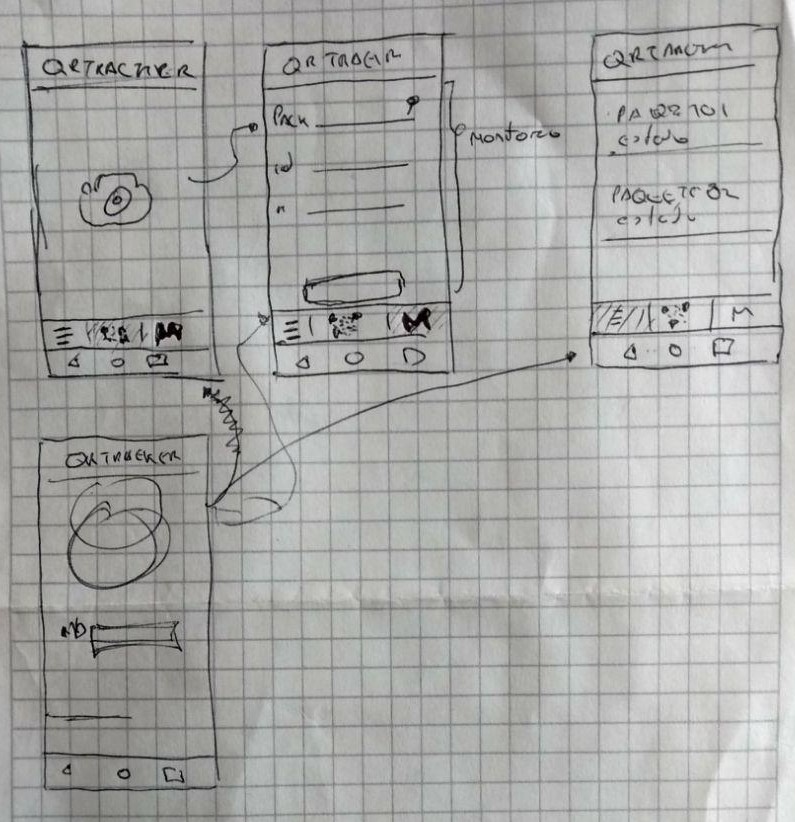 QRTRACKER
QRTRACKER
Pack
id
n
Montoreo
PAQETE01
estado
PAQUETE02
estado
M
QRTRACKER